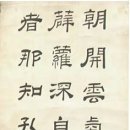 朝開雲
薜蘿深自
者那知孔